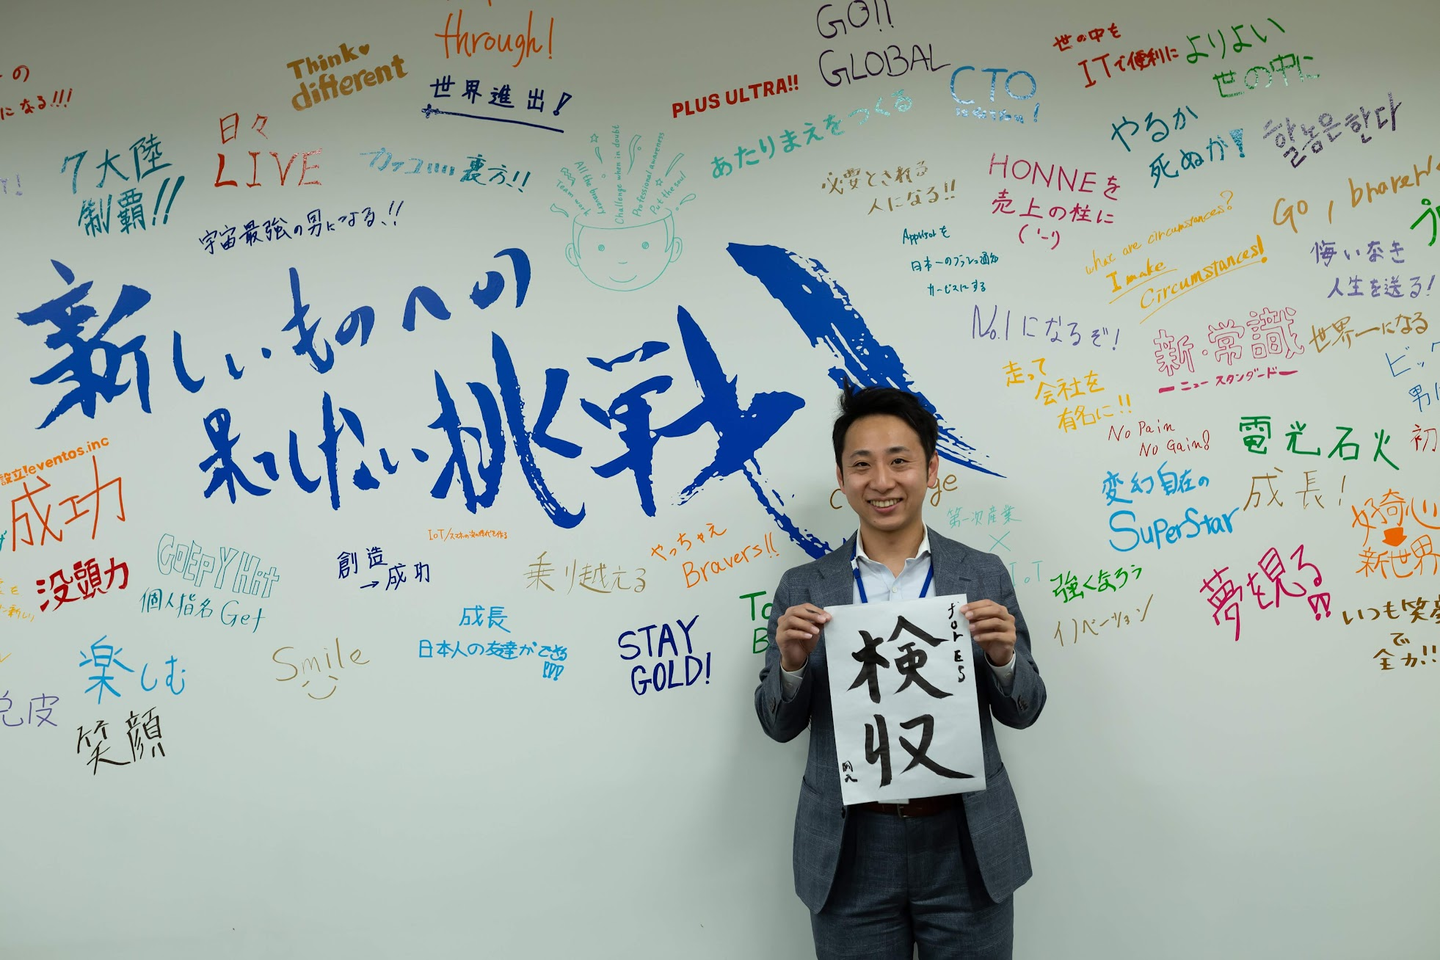 になる!!!
Think
different
through!
世界進出!
GO!!
GLOBAL
PLUS ULTRA!!
あたりまえをつくる
CTO
世の中も
ITで便利に
よりよい
世の中に
やるか
死ぬが!
할놈은한다
7大陸
制覇!!
日々
LIVE
裏方!!
宇宙最強の男になる!!
All the Bravery
Challenge when in doubt
Professional awareness
Put the soul
Team work
必要とされる
人になる!!
HONNEを
売上の柱に
日本一の
サービスにする
what are circumstances?
I make
Circumstances!
GO,
悔いなき
人生を送る!
新しいものへの
果てしない挑戦
No.1になるぞ!
走って
会社を
有名に!!
新・常識
ーニュースタンダードー
世界一になる
No Pain
No Gain!
電光石火
初
変幻自在の
SuperStar
成長!
好奇心
新世界
設立!eventos.inc
成功
没頭力
GOEPYHit
個人指名Get
創造
→成功
乗り越える
やっちゃえ
Bravers!!
第一次産業
×
IoT
強くなろう
イノベーション
夢を見る!!
いつも笑顔
で
全力!!
楽しむ
笑顔
Smile
成長
日本人の友達ができる
!!!
STAY
GOLD!
検収